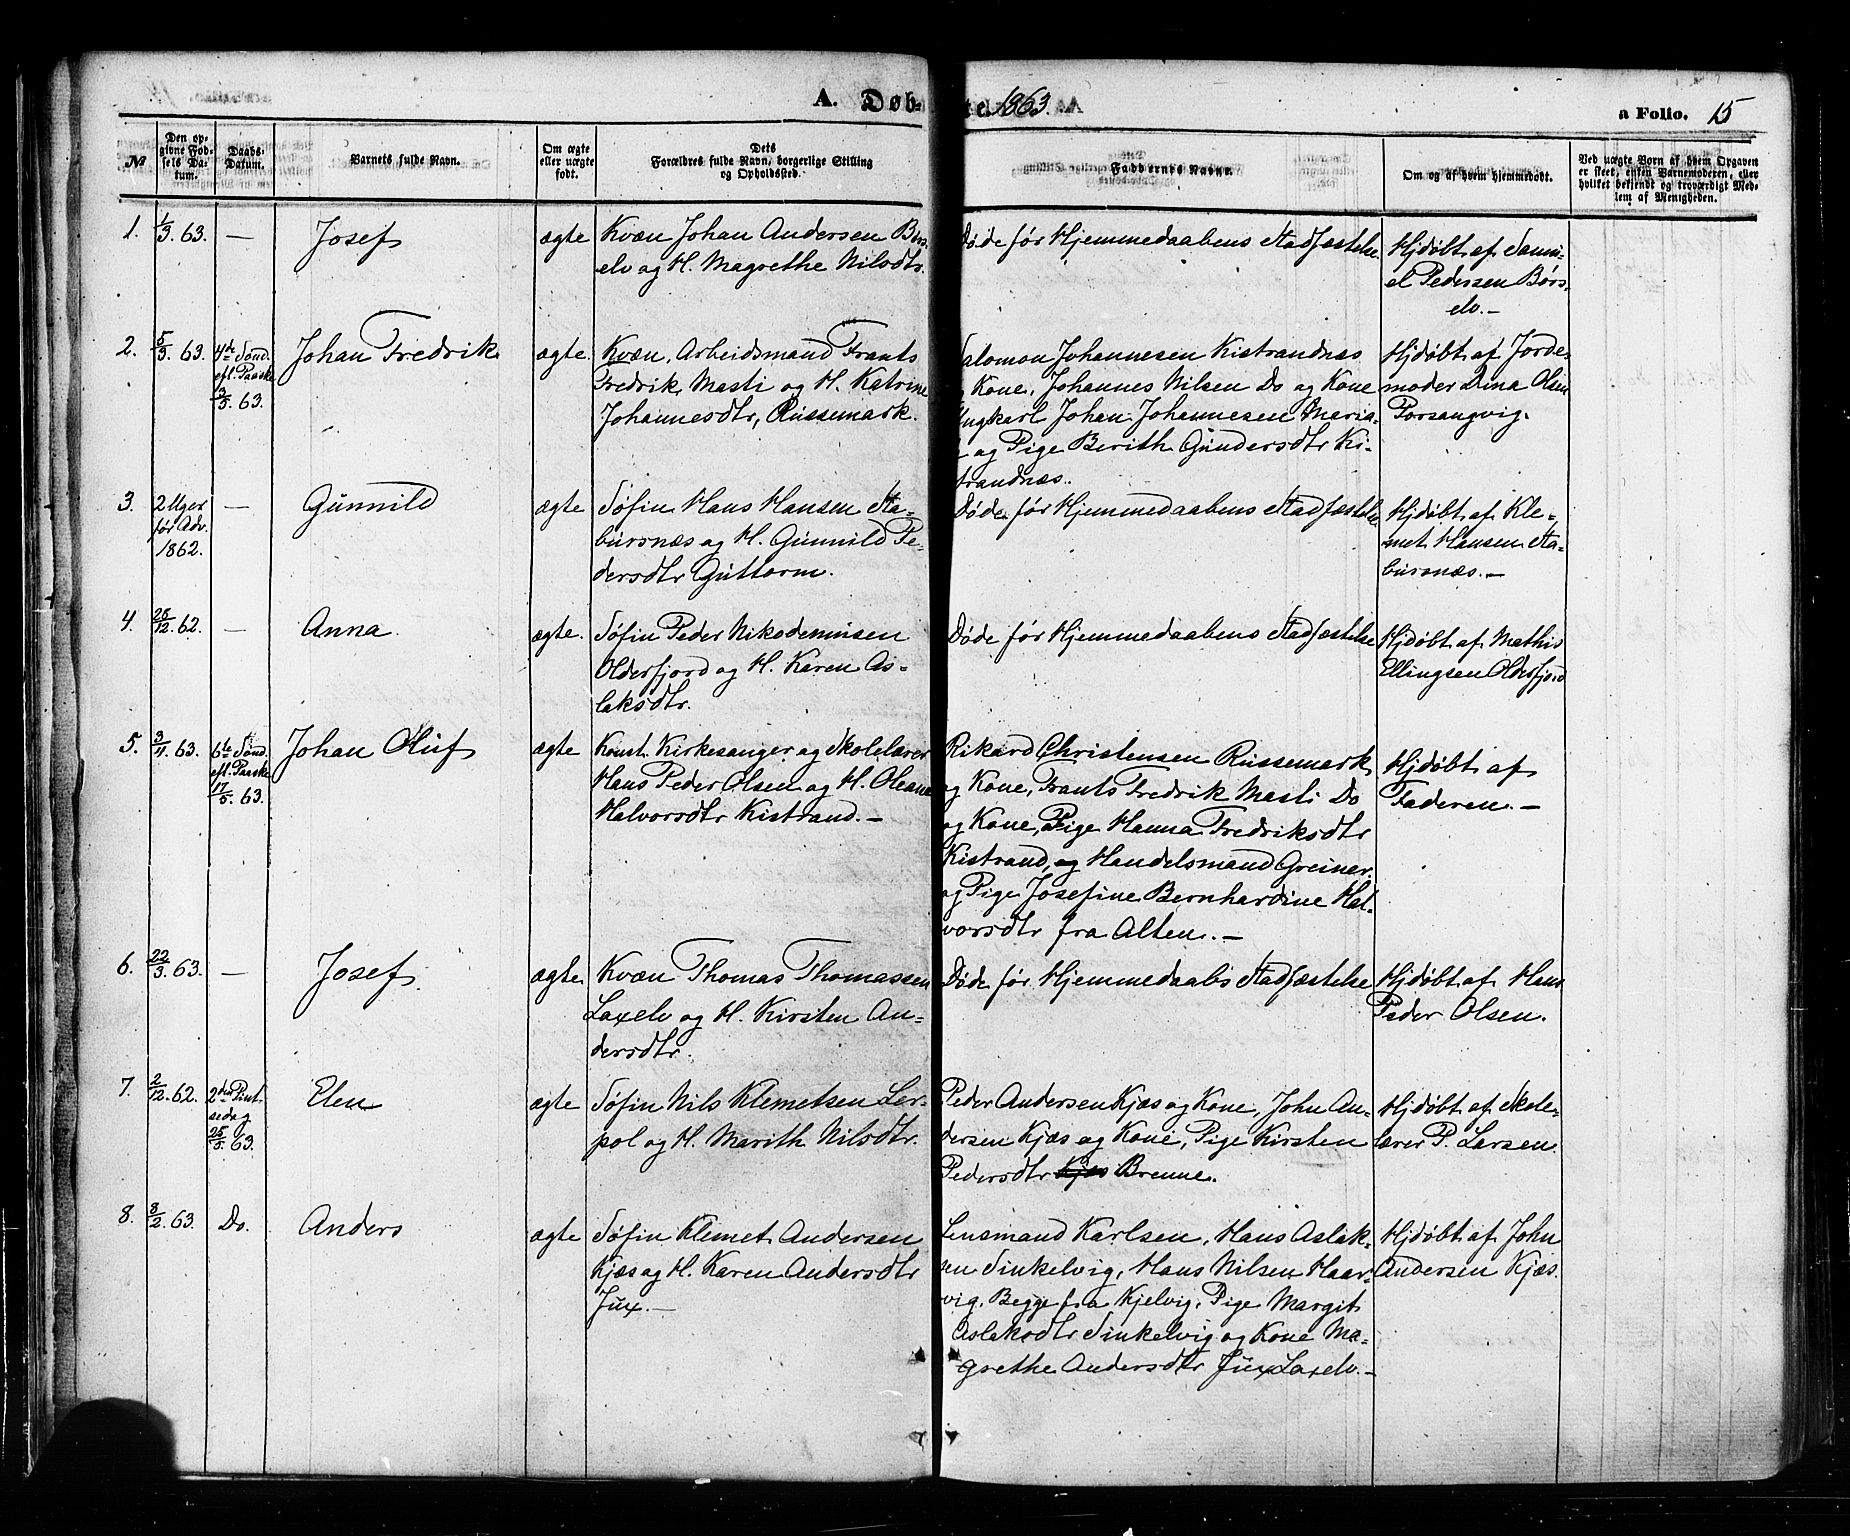 A. Døb-
te. 1863.
a Folio. 15
№
Den op-
givne Fød-
sels Da-
tum.
Daabs-
Datum.
Barnets fulde Navn.
Om ægte
eller uægte
født.
Dets
Forældres fulde Navn, borgerlige Stilling
og Opholdssted.
Faddernes Navne.
Om og af hvem hjemmedøbt.
Ved uægte Børn af hvem Opgaven
er skeet, enten Barnemoderen, eller
hvilket bekjendt og troværdigt Med-
lem af Menigheden.
1.
1/3. 63.
—
Josef
ægte
Kvæn Johan Andersen Børs-
elv og H. Magrethe Nilsdtr.
Døde før Hjemmedaabens Stadfæstelse
Hjdøbt af Samu-
el Pedersen Børs-
elv.—
2.
5/3. 63.
4de Sønd.
eft. Paaske
3/5. 63.
Johan Fredrik
ægte.
Kvæn, Arbeidsmand Frants
Fredrik Masti og H. Katrine
Johannesdtr, Russemark.
Salomon Johannesen Kistrandnæs
og Kone, Johannes Nilsen Do og Kone
Ungkarl Johan Johannesen Maria-
og Pige Berith Gundersdtr Ki-
strandnæs.
Hjdøbt af Jorde-
moder Dina Olsen
Porsangvig.
3.
2 Uger
før Adv.
1862.
—
Gunnild
ægte
Søfin Hans Hansen Sta-
bursnæs og H. Gunnild Pe-
dersdtr Guttorm.
Døde før Hjemmedaabens Stadfæstelse
Hjdøbt af Kle-
met Hansen Sta-
bursnæs.—
4.
28/12. 62.
—
Anna
ægte.
Søfin Peder Nikodemusen
Olderfjord og H. Karen As-
laksdtr.
Døde før Hjemmedaabens Stadfæstelse
Hjdøbt af Mathis
Ellingsen Olderfjord
5.
3/4. 63.
6te Sønd.
eft. Paaske
17/5. 63.
Johan Oluf
ægte
Konst. Kirkesanger og Skolelærer
Hans Peder Olsen og H. Oleane
Halvorsdtr Kistrand.—
Rikard Christensen Russemark
og Kone, Frants Fredrik Masti Do
og Kone, Pige Hanna Fredriksdtr
Kistrand, og Handelsmand Greiner
og Pige Josefine Bernhardine Hal-
vorsdtr fra Alten.—
Hjdøbt af
Faderen.—
6.
22/3. 63.
—
Josef.
ægte.
Kvæn Thomas Thomassen
Laxelv og H. Kirsten An-
dersdtr.
Døde før Hjemmedaabs Stadfæstelse
Hjdøbt af Hans
Peder Olsen.
7.
2/12. 62.
2den Pint-
sedag
25/5. 63.
Elen
ægte
Søfin Nils Klemetsen Ler-
pol og H. Marith Nilsdtr.
Peder Andersen Kjæs og Kone, John An-
dersen Kjæs og Kone, Pige Kirsten
Pedersdtr Kjæs Brenne.
Hjdøbt af Skole-
lærer P. Larsen
8.
8/2. 63.
Do.
Anders
ægte
Søfin Klemet Andersen
Kjæs og H. Karen Andersdtr
Jux.—
Lensmand Karlsen, Hans Aslak-
sen Sinkelvig, Hans Nilsen Haar-
vig, Begge fra Kjelvig, Pige Margit
Aslaksdtr Sinkelvig og Kone Ma-
grethe Andersdtr Jux Laxelv.—
Hjdøbt af John
Andersen Kjæs.